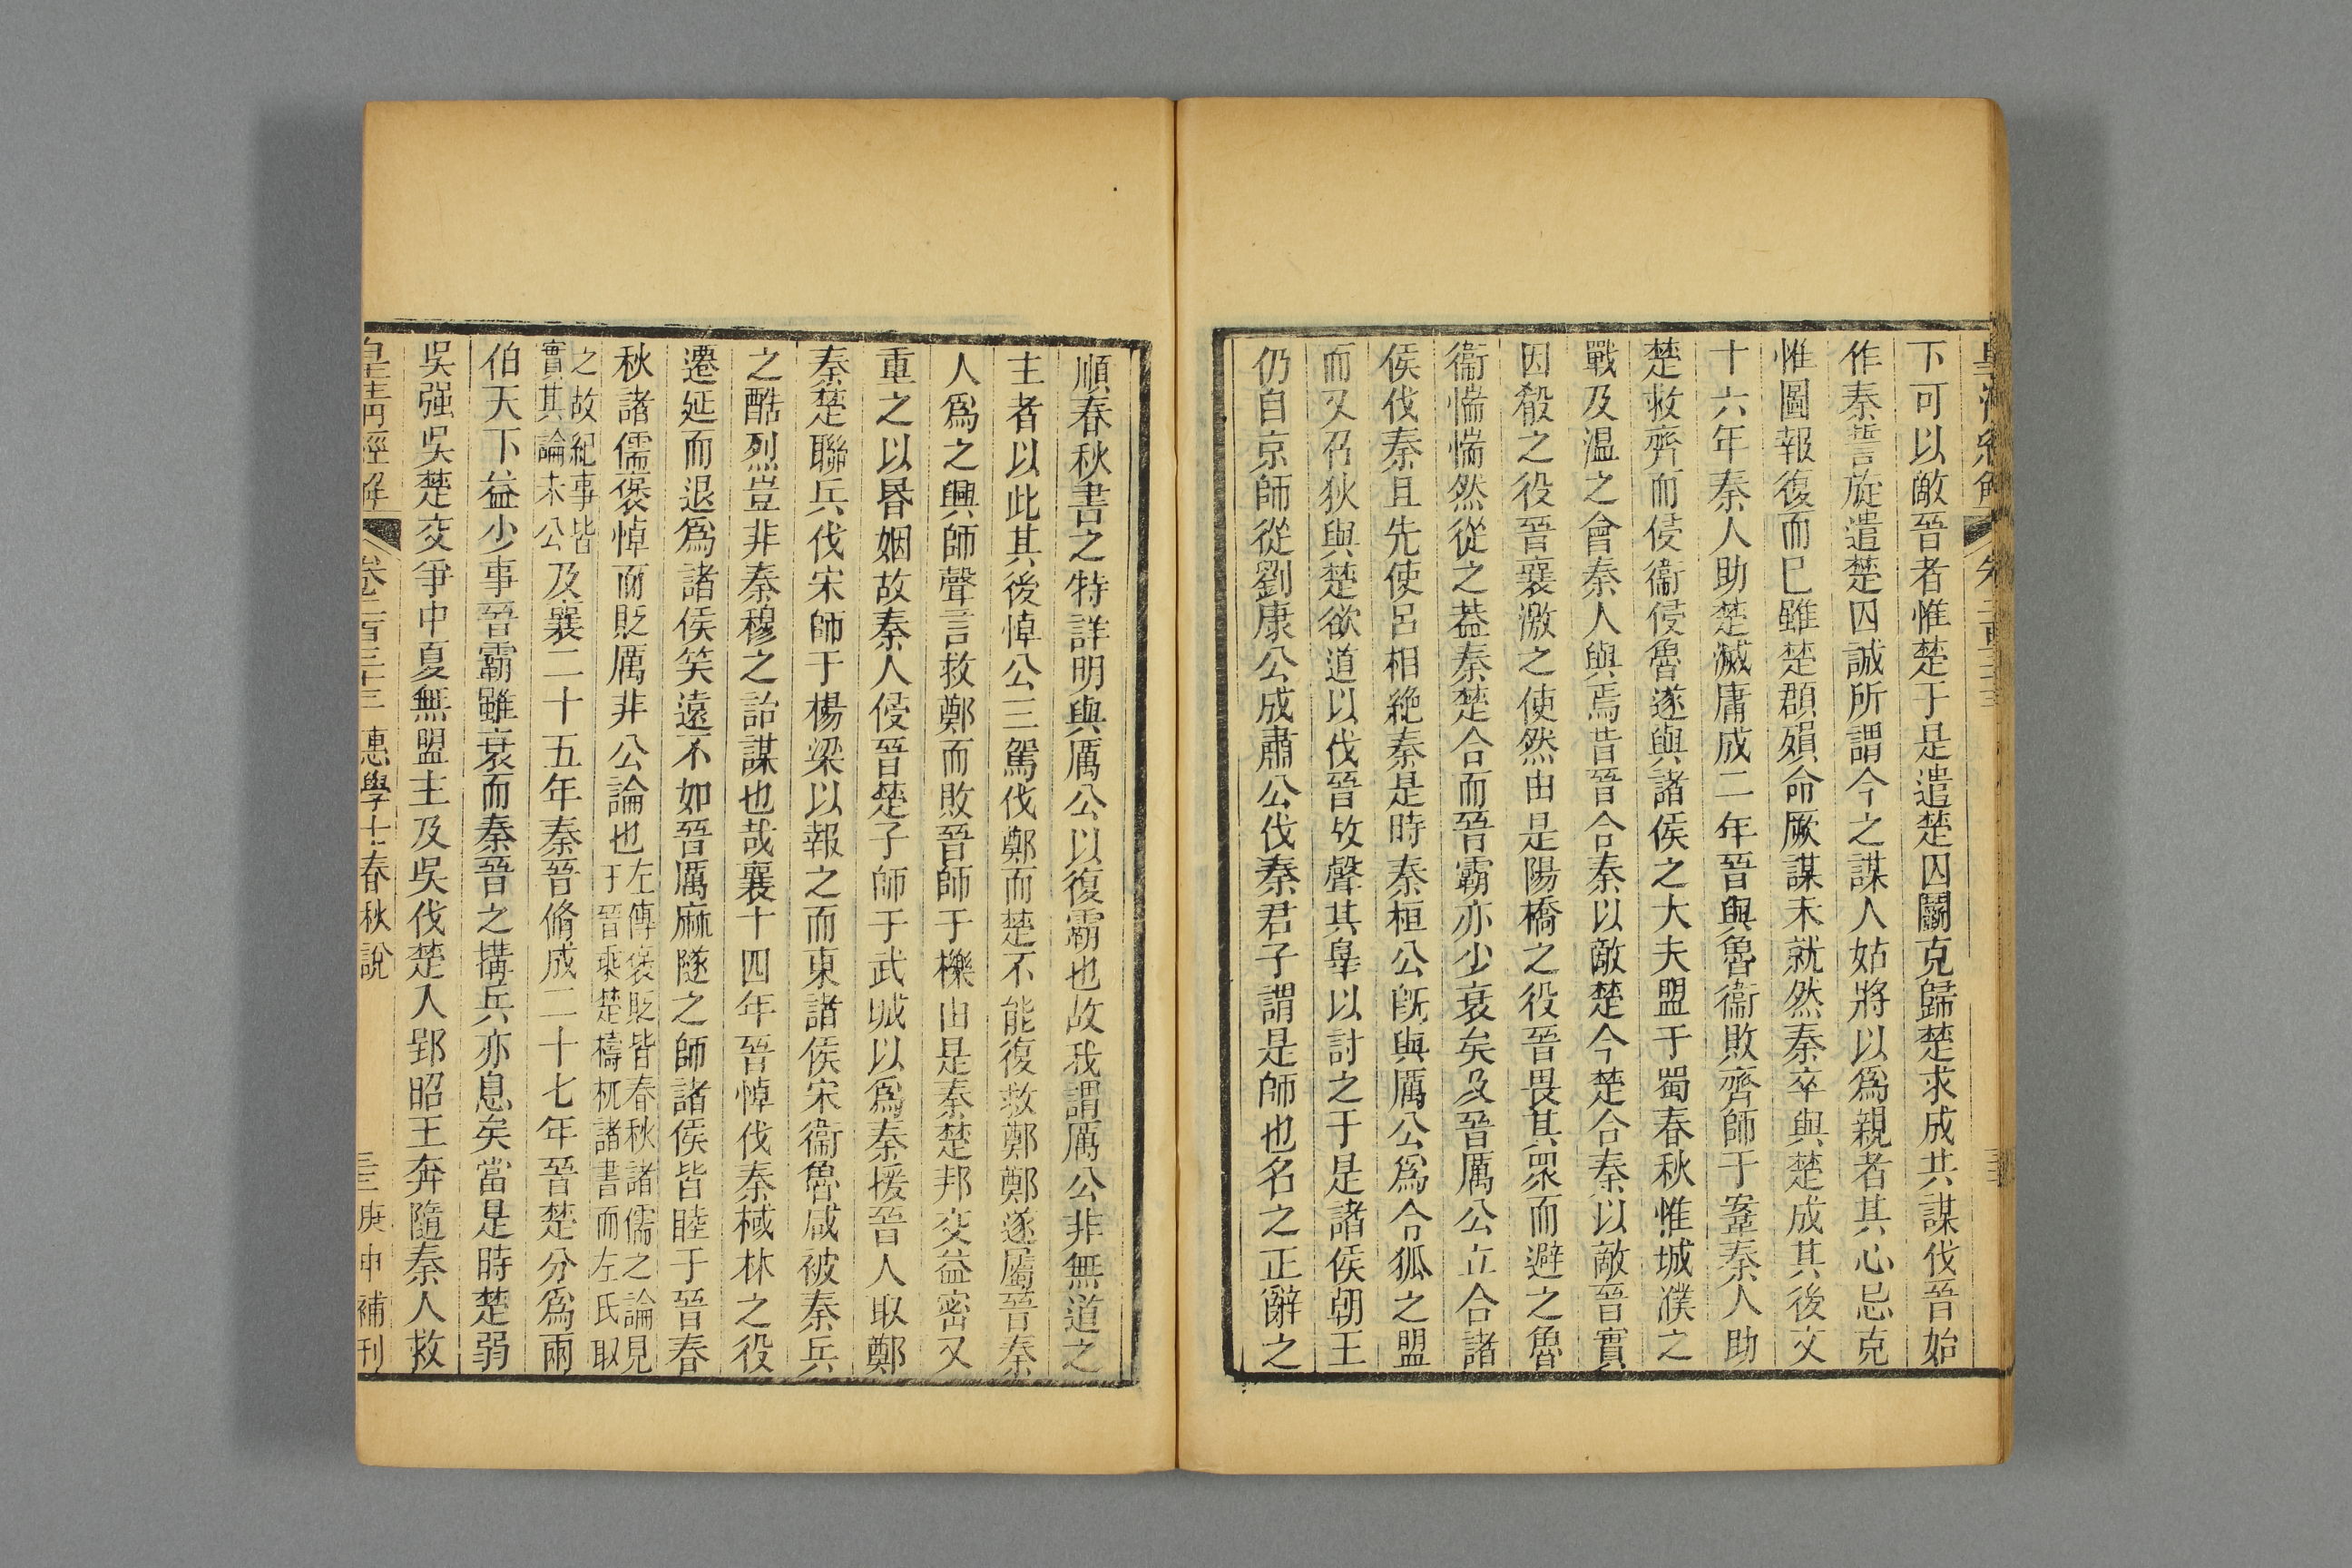 皇清經解 卷二百三十三
下可以敵晉者惟楚于是遣楚囚鬭克歸楚求成共謀伐晉始
作秦誓旋遣楚囚誠所謂今之謀人姑將以爲親者其心忌克
惟圖報復而巳雖楚頵殞命厥謀未就然秦卒與楚成其後文
十六年秦人助楚滅庸成二年晉與魯衞敗齊師于鞌秦人助
楚救齊而侵衞侵魯遂與諸侯之大夫盟于蜀春秋惟城濮之
戰及温之會秦人與焉昔晉合秦以敵楚今楚合秦以敵晉實
因殽之役晉襄激之使然由是陽橋之役晉畏其眾而避之魯
衞惴惴然從之葢秦楚合而晉霸亦少衰矣及晉厲公立合諸
侯伐秦且先使呂相絶秦是時秦桓公旣與厲公爲令狐之盟
而又召狄與楚欲道以伐晉故聲其辠以討之于是諸侯朝王
仍自京師從劉康公成肅公伐秦君子謂是師也名之正辭之
順春秋書之特詳明與厲公以復霸也故我謂厲公非無道之
主者以此其後悼公三駕伐鄭而楚不能復救鄭鄭遂屬晉秦
人爲之興師聲言救鄭而敗晉師于櫟由是秦楚邦交益密又
重之以昏姻故秦人侵晉楚子師于武城以爲秦援晉人取鄭
秦楚聯兵伐宋師于楊梁以報之而東諸侯宋衞魯咸被秦兵
之酷烈豈非秦穆之詒謀也哉襄十四年晉悼伐秦棫林之役
遷延而退爲諸侯笑遠不如晉厲麻隧之師諸侯皆睦于晉春
秋諸儒褒悼而貶厲非公論也左傳褒貶皆春秋諸儒之論見于晉乘楚檮杌諸書而左氏取
之故紀事皆實其論未公及襄二十五年秦晉脩成二十七年晉楚分爲兩
伯天下益少事晉霸雖衰而秦晉之搆兵亦息矣當是時楚弱
吳强吳楚交爭中夏無盟主及吳伐楚入郢昭王奔隨秦人救
皇清經解 卷二百三十三 惠學士春秋說 三 庚申補刊